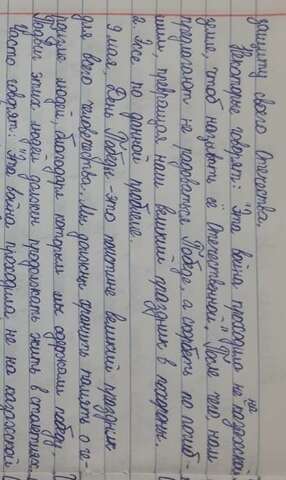 защиту своего Отечества.
Некоторые говорят: "Эта война проходила не на казахской
земле, чтоб называть её Отечественной". После чего, нам
предлагают не радоваться Победе, а скорбеть по погиб-
шим, превращая наш великий праздник в похороны.
2. Эссе по данной проблеме.
9 мая, День Победы - это поистине великий праздник
для всего человечества. Мы должны хранить память о ге-
роизме людей, благодаря которым мы одержали победу.
Подвиг этих людей должен продолжать жить в столетиях.
Часто говорят: "Эта война проходила не на казахской